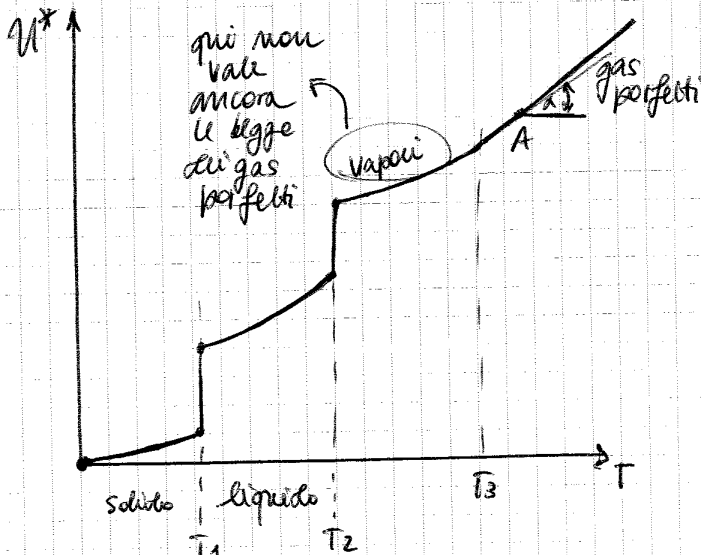 U*
qui non
vale
ancora
le legge
dei gas
perfetti
vapori
gas
perfetti
α
A
T
solido
liquido
T1
T2
T3